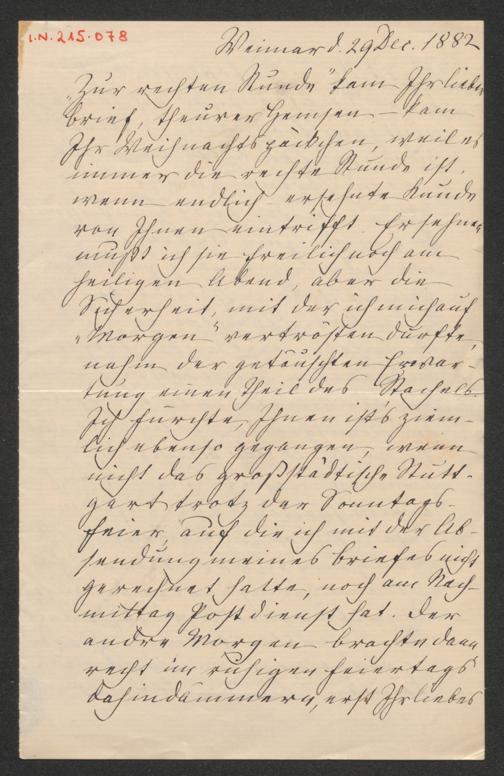 I.N. 215.078
Weimar d. 29 Dec. 1882
„Zur rechten Stunde“ kam Ihr lieber
Brief, theurer Hemsen – kam
Ihr Weihnachtspäckchen, weil es
immer die rechte Stunde ist,
wenn endlich ersehnte Kunde
von Ihnen eintrifft. Ersehnen
mußt ich sie freilich noch am
heiligen Abend, aber die
Sicherheit, mit der ich mich auf
„Morgen“ vertrösten durfte,
nahm der getäuschten Erwar-
tung einen Theil des Stachels.
Ich fürchte, Ihnen ists ziem-
lich ebenso gegangen, wenn
nicht das großstädtische Stutt-
gart trotz der Sonntags-
feier, auf die ich mit der Ab-
sendung meines Briefes nicht
gerechnet hatte, noch am Nach-
mittag Postdienst hat. Der
andre Morgen brachte dann
recht im ruhigen Feiertags-
dahindämmern, erst Ihr liebes